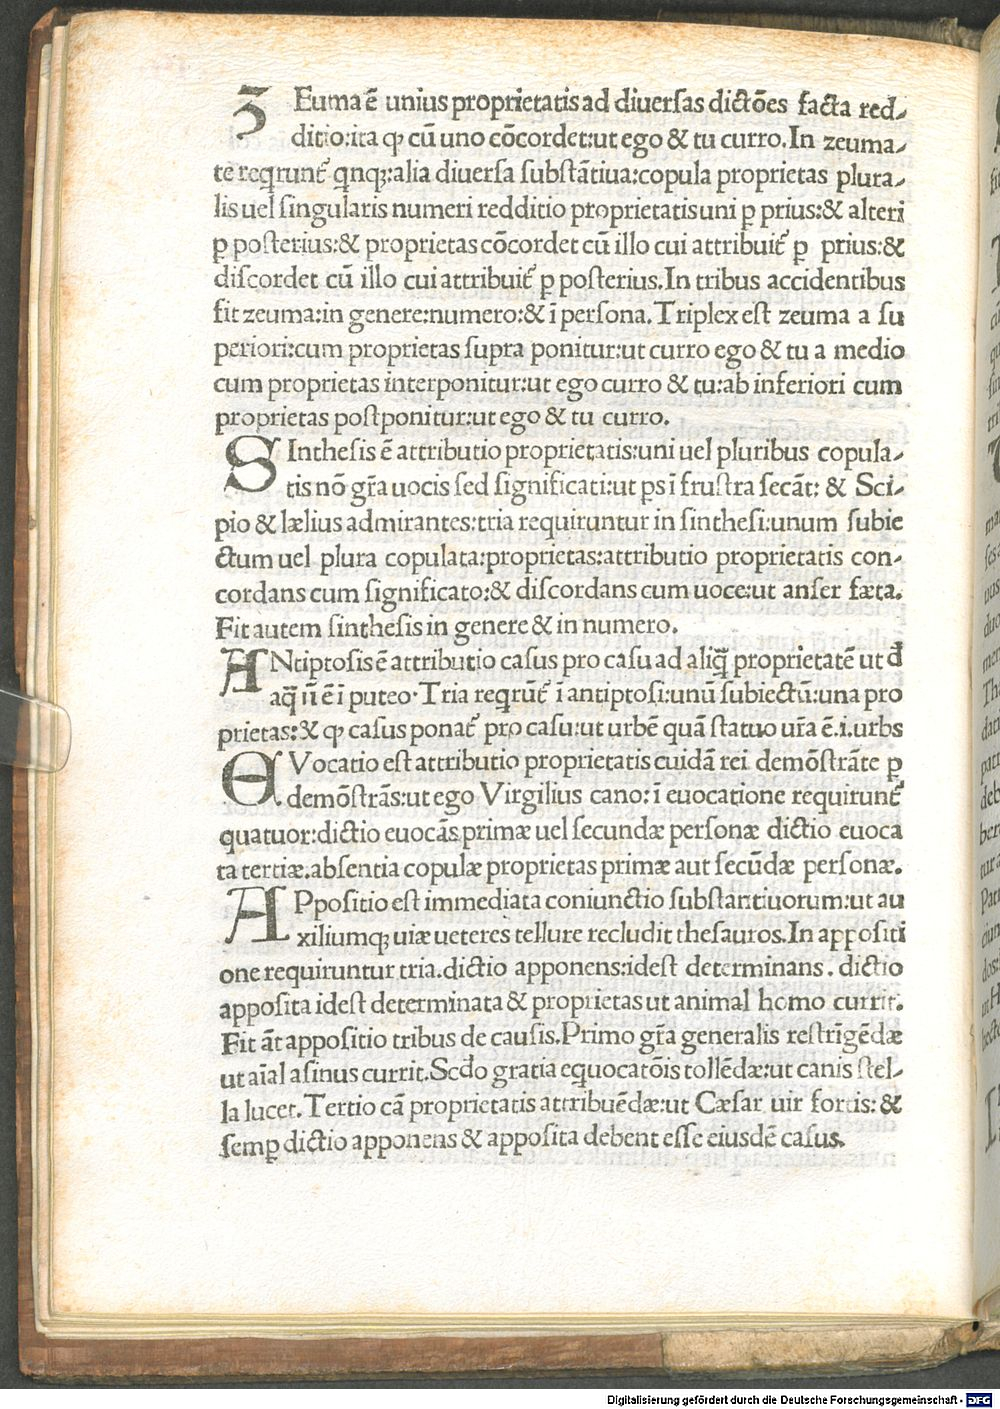 ZEuma ē unius proprietatis ad diuersas dictōes facta red-
ditio:ita ꝙ cū uno cōcordet:ut ego & tu curro. In zeuma-
te reqrunt᷑ qnqꝫ:alia diuersa substātiua:copula proprietas plura-
lis uel singularis numeri redditio proprietatis uni ꝑ prius:& alteri
ꝑ posterius:& proprietas cōcordet cū illo cui attribuit᷑ ꝑ prius:&
discordet cū illo cui attribuit᷑ ꝑ posterius. In tribus accidentibus
fit zeuma:in genere:numero:& ī persona. Triplex est zeuma a su
periori:cum proprietas supra ponitur:ut curro ego & tu a medio
cum proprietas interponitur:ut ego curro & tu:ab inferiori cum
proprietas postponitur:ut ego & tu curro.
SInthesis ē attributio proprietatis:uni uel pluribus copula-
tis nō gr̄a uocis sed significati:ut ps ī frustra secāt: & Sci-
pio & lælius admirantes:tria requiruntur in sinthesi:unum subie
ctum uel plura copulata:proprietas:attributio proprietatis con-
cordans cum significato:& discordans cum uoce:ut anser fæta.
Fit autem sinthesis in genere & in numero.
ANtiptosis ē attributio casus pro casu ad aliq̄ proprietatē ut d̄
aq̄ n̄ ē ī puteo. Tria reqrūt᷑ ī antiptosi:unū subiectū:una pro
prietas:& ꝙ casus ponat᷑ pro casu:ut urbē quā statuo ur̄a ē.i.urbs
EVocatio est attributio proprietatis cuidā rei demōstrāte ꝑ
demōstrās:ut ego Virgilius cano: ī euocatione requirunt᷑
quatuor:dictio euocās primæ uel secundæ personæ dictio euoca
ta tertiæ.absentia copulæ proprietas primæ aut secūdæ personæ.
APpositio est immediata coniunctio substantiuorum:ut au
xiliumqꝫ uiæ ueteres tellure recludit thesauros. In appositi
one requiruntur tria.dictio apponens:idest determinans. dictio
apposita idest determinata & proprietas ut animal homo currit.
Fit āt appositio tribus de causis. Primo gr̄a generalis restrīgēdæ
ut aīal asinus currit. Scdo gratia equocatōis tollēdæ:ut canis stel-
la lucet. Tertio cā proprietatis attribuēdæ:ut Cæsar uir fortis: &
semꝑ dictio apponens & apposita debent esse eiusdē casus.
Digitalisierung gefördert durch die Deutsche Forschungsgemeinschaft - DFG